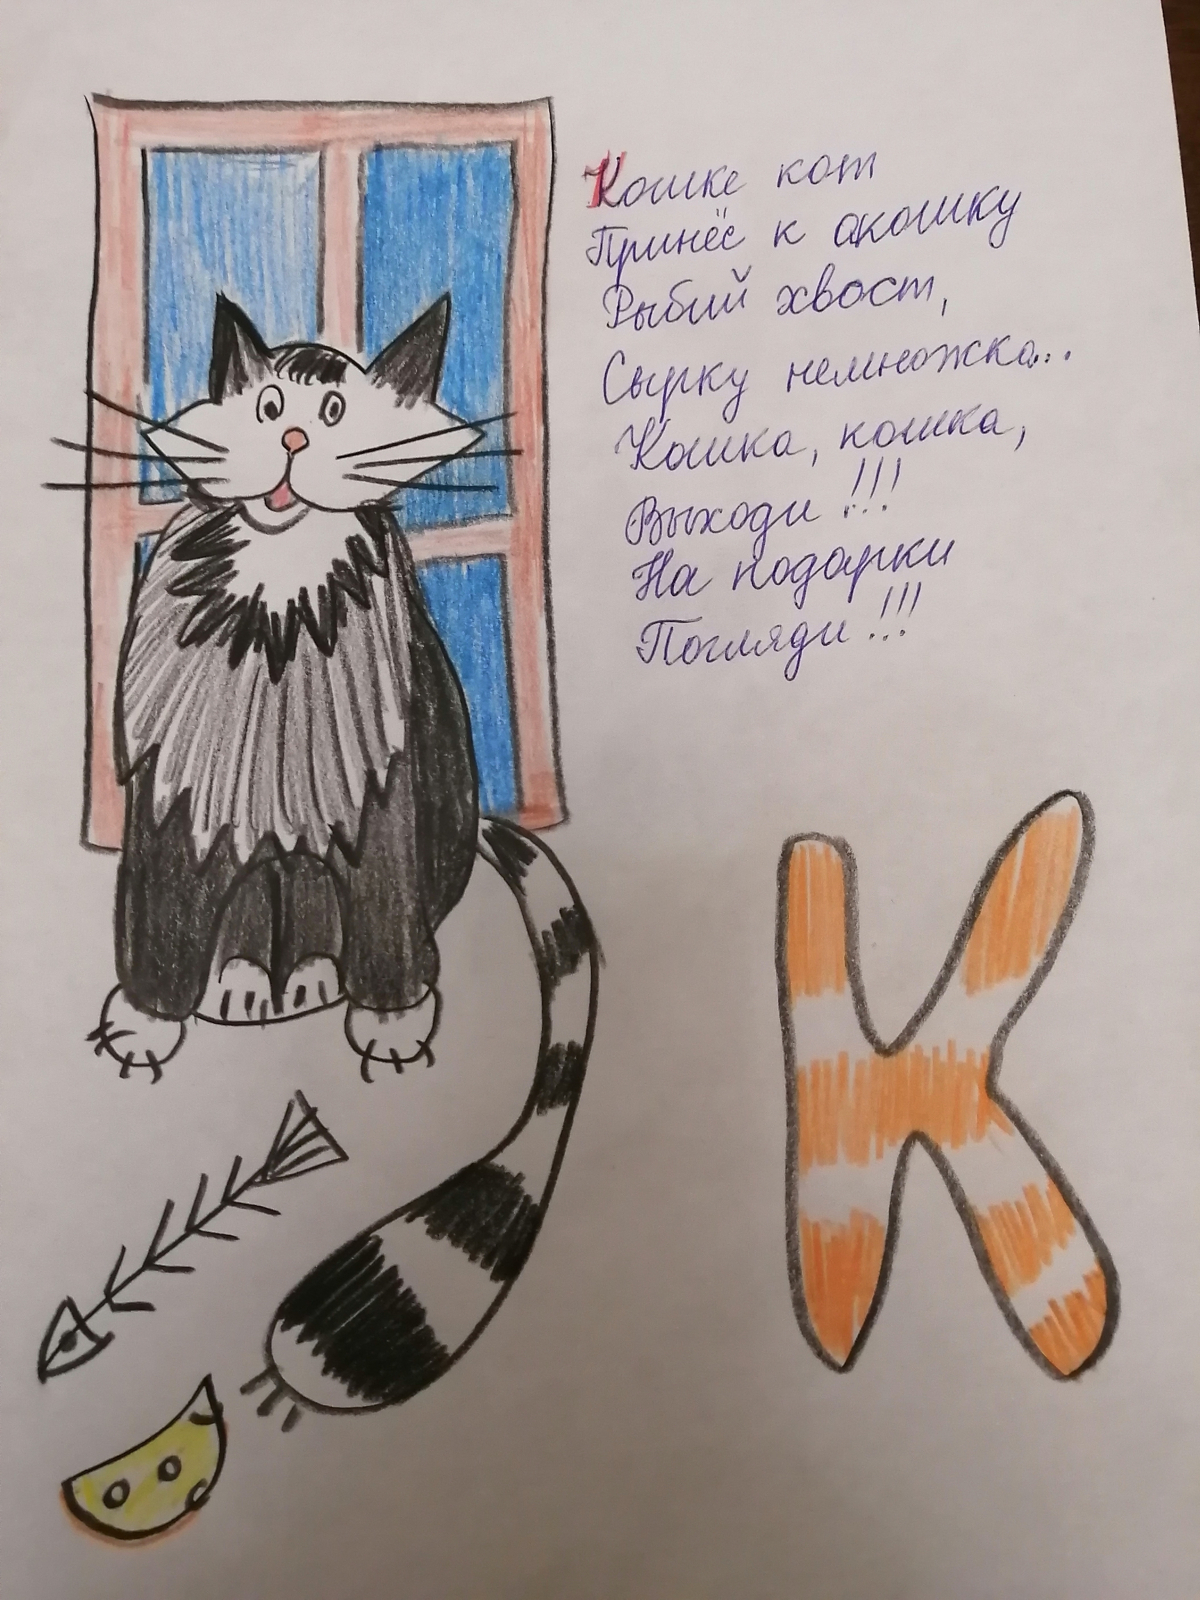 Кошке кот
Принёс к окошку
Рыбий хвост,
Сырку немножко...
Кошка, кошка,
Выходи!!!
На подарки
Погляди!!!
К